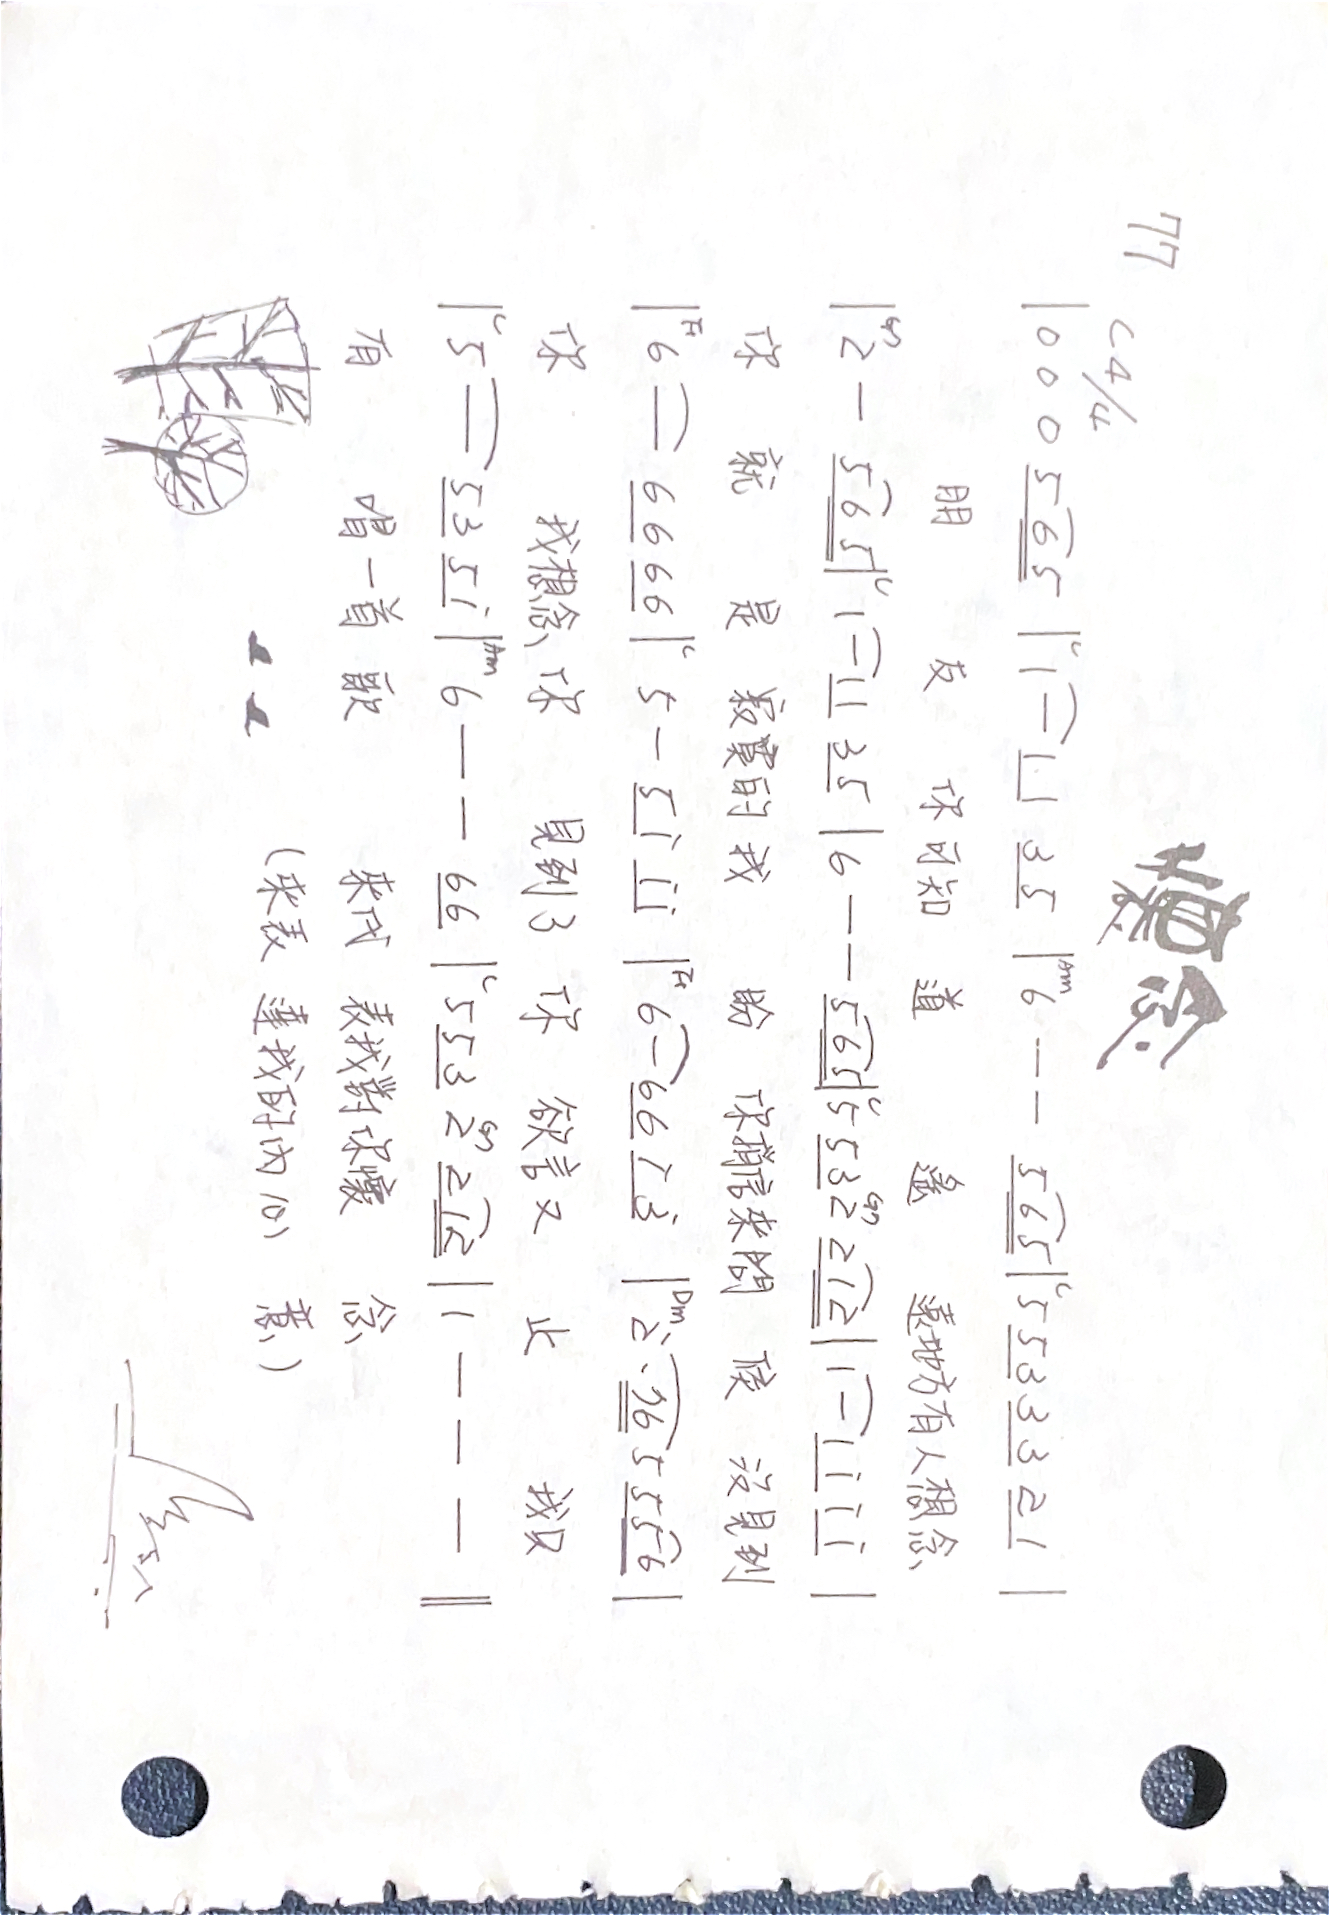 懷念
77
C 4/4
| 0 0 0 5 6 5 | C 1 — 1 1 3 5 | Am 6 — — 5 6 5 | C 5 5 3 3 3 2 1 |
朋 友 你可知 道 遙 遠地方有人想念
| G7 2 — 5 6 5 | C 1 — 1 1 3 5 | 6 — — 5 6 5 | C 5 5 3 G7 2 2 1 2 | 1 — 1 i i i |
你 就 是 寂寞的我 盼 你捎信來問 候 沒見到
| F 6 — 6 6 6 6 | C 5 — 5 i i i | F 6 — 6 6 i 3̇ | Dm 2̇ . 7 6 5 5 5 6 |
你 我想念你 見到了你 欲言又 止 我只
| C 5 — 5 3 5 i | Am 6 — — 6 6 | C 5 5 3 G7 2 2 1 2 | 1 — — — ‖
有 唱一首歌 來代 表我對你懷 念
(來表 達我的內心 意)